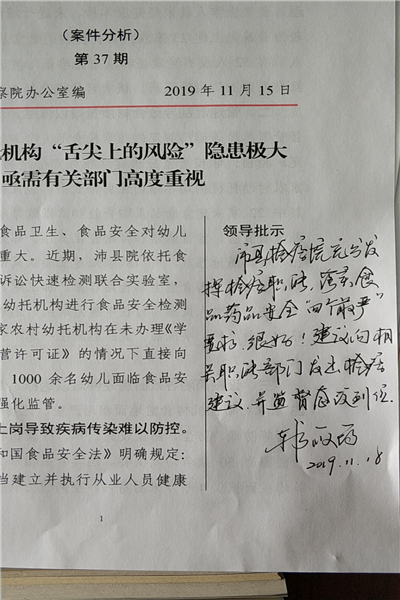 （案件分析）
第 37 期
察院办公室编
2019 年 11 月 15 日
机构“舌尖上的风险”隐患极大
亟需有关部门高度重视
食品卫生、食品安全对幼儿
重大。近期，沛县院依托食
诉讼快速检测联合实验室，
幼托机构进行食品安全检测
家农村幼托机构在未办理《学
营许可证》的情况下直接向
1000 余名幼儿面临食品安
强化监管。
上岗导致疾病传染难以防控。
和国食品安全法》明确规定：
当建立并执行从业人员健康
领导批示
沛县检察院充分发
挥检察职能，落实食
品药品安全“四个最严”
要求，很好！建议向相
关职能部门发出检察
建议，并监督整改到位.
2019.11.18
1